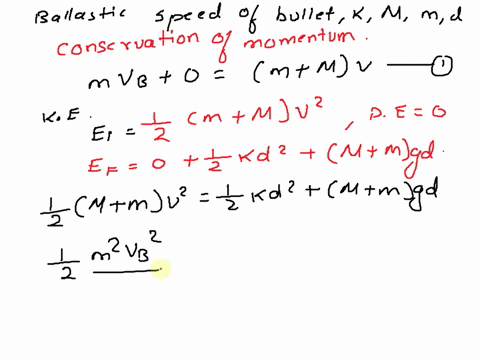 Ballastic speed of bullet, K, M, m, d
conservation of momentum.
m VB + 0 = (m+M) v — ①
K.E.
EI = 1/2 (m+M) v² , P.E = 0
EF = 0 + 1/2 Kd² + (M+m)gd.
1/2 (M+m) v² = 1/2 Kd² + (M+m)gd
1/2 m² VB²